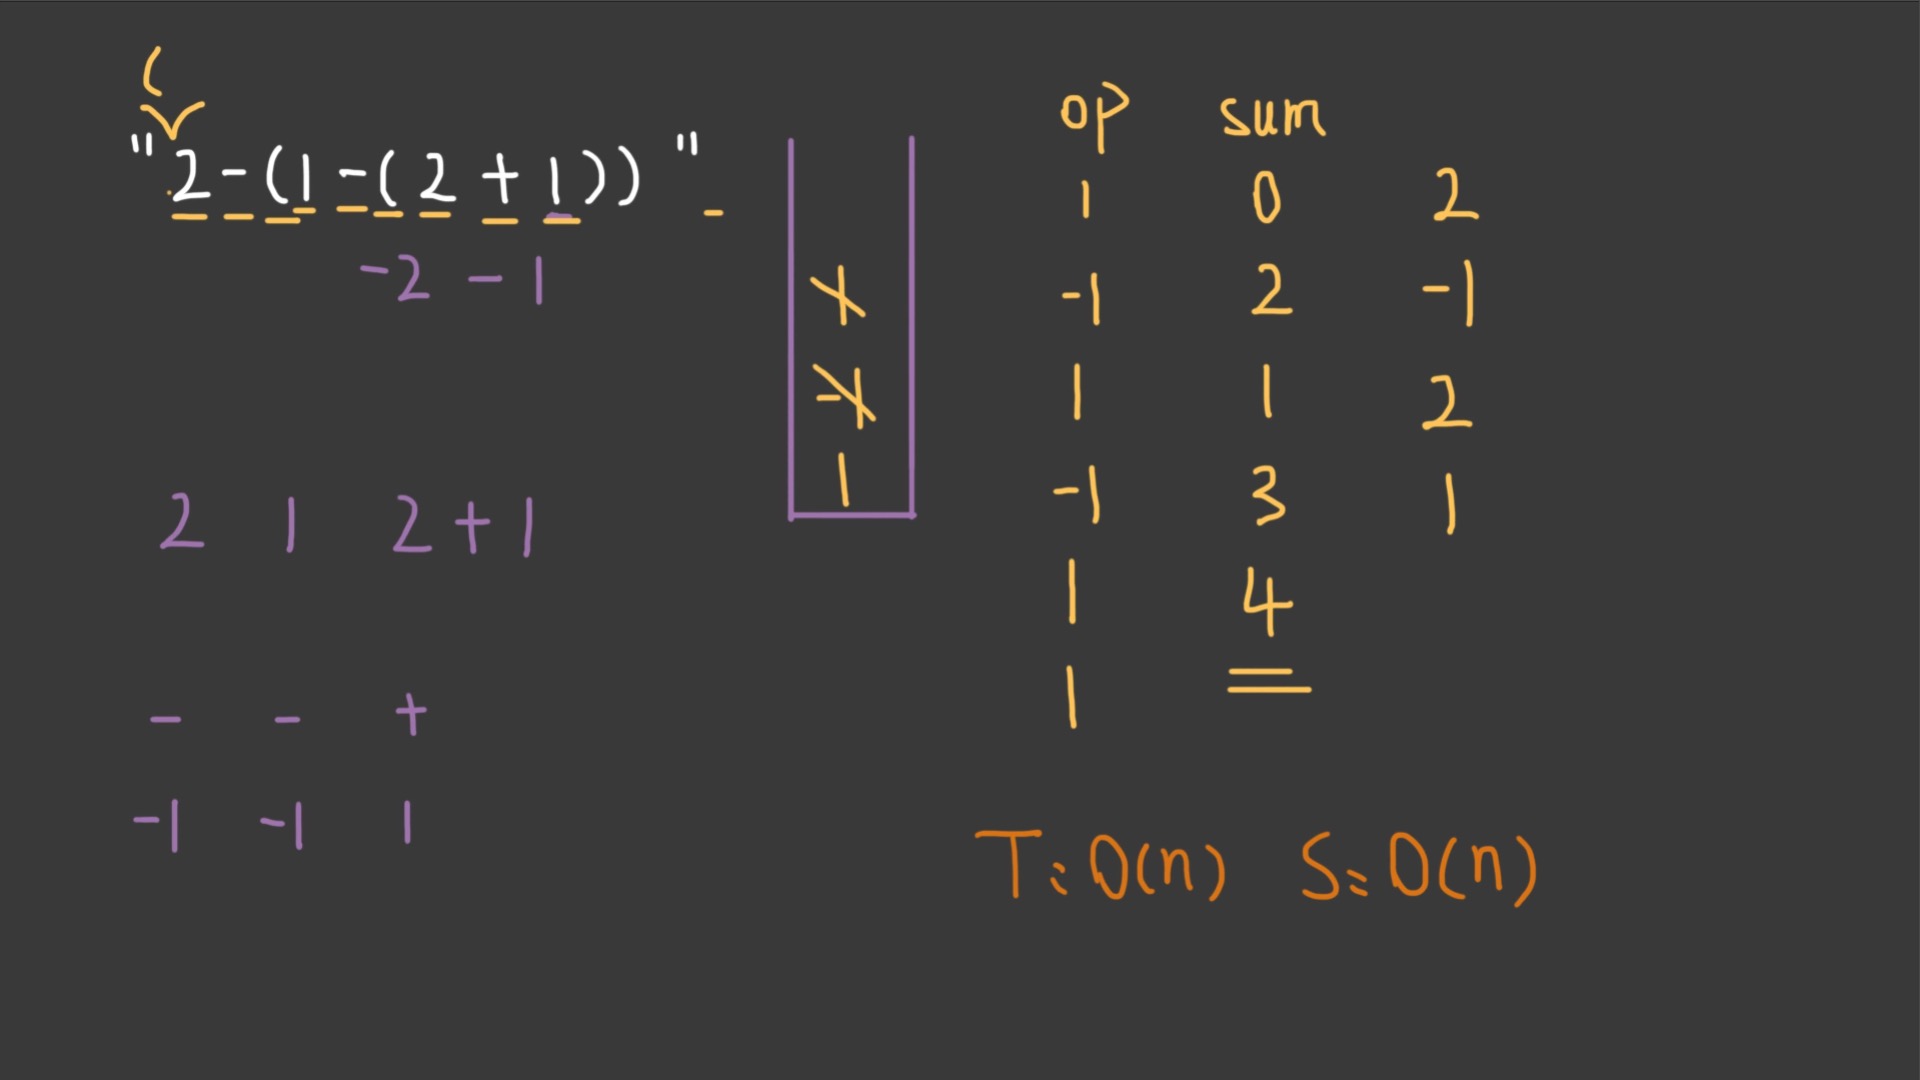 (
"2-(1-(2+1))"
-2-1
2 1 2+1
- - +
-1 -1 1
1
-1
1
op sum
1 0 2
-1 2 -1
1 1 2
-1 3 1
1 4
1
T:O(n) S:O(n)